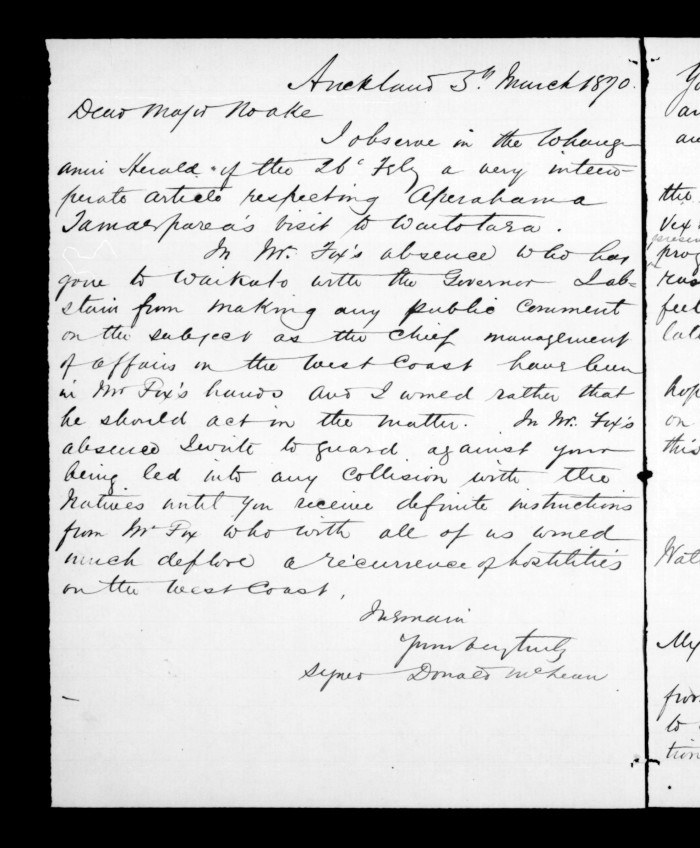 Auckland 3rd March 1870.
Dear Major Noake
I observe in the Whang-
anui Herald of the 26th Feby a very intem-
perate article respecting Aperahama
Tamaiparea's visit to Waitotara.
In Mr. Fox's absence who has
gone to Waikato with the Governor I ab-
stain from making any public comment
on the subject as the chief management
of affairs on the West Coast have been
in Mr Fox's hands and I would rather that
he should act in the matter. In Mr. Fox's
absence I write to guard against your
being led into any collision with the
Natives until you receive definite instructions
from Mr Fox who with all of us would
much deplore a recurrence of hostilities
on the West Coast.
I remain
Yours very truly
Signed Donald McLean
Yo
an
an
the
Vex
presen
prog
reas
feel
hop
on
this
My
from
to
tion